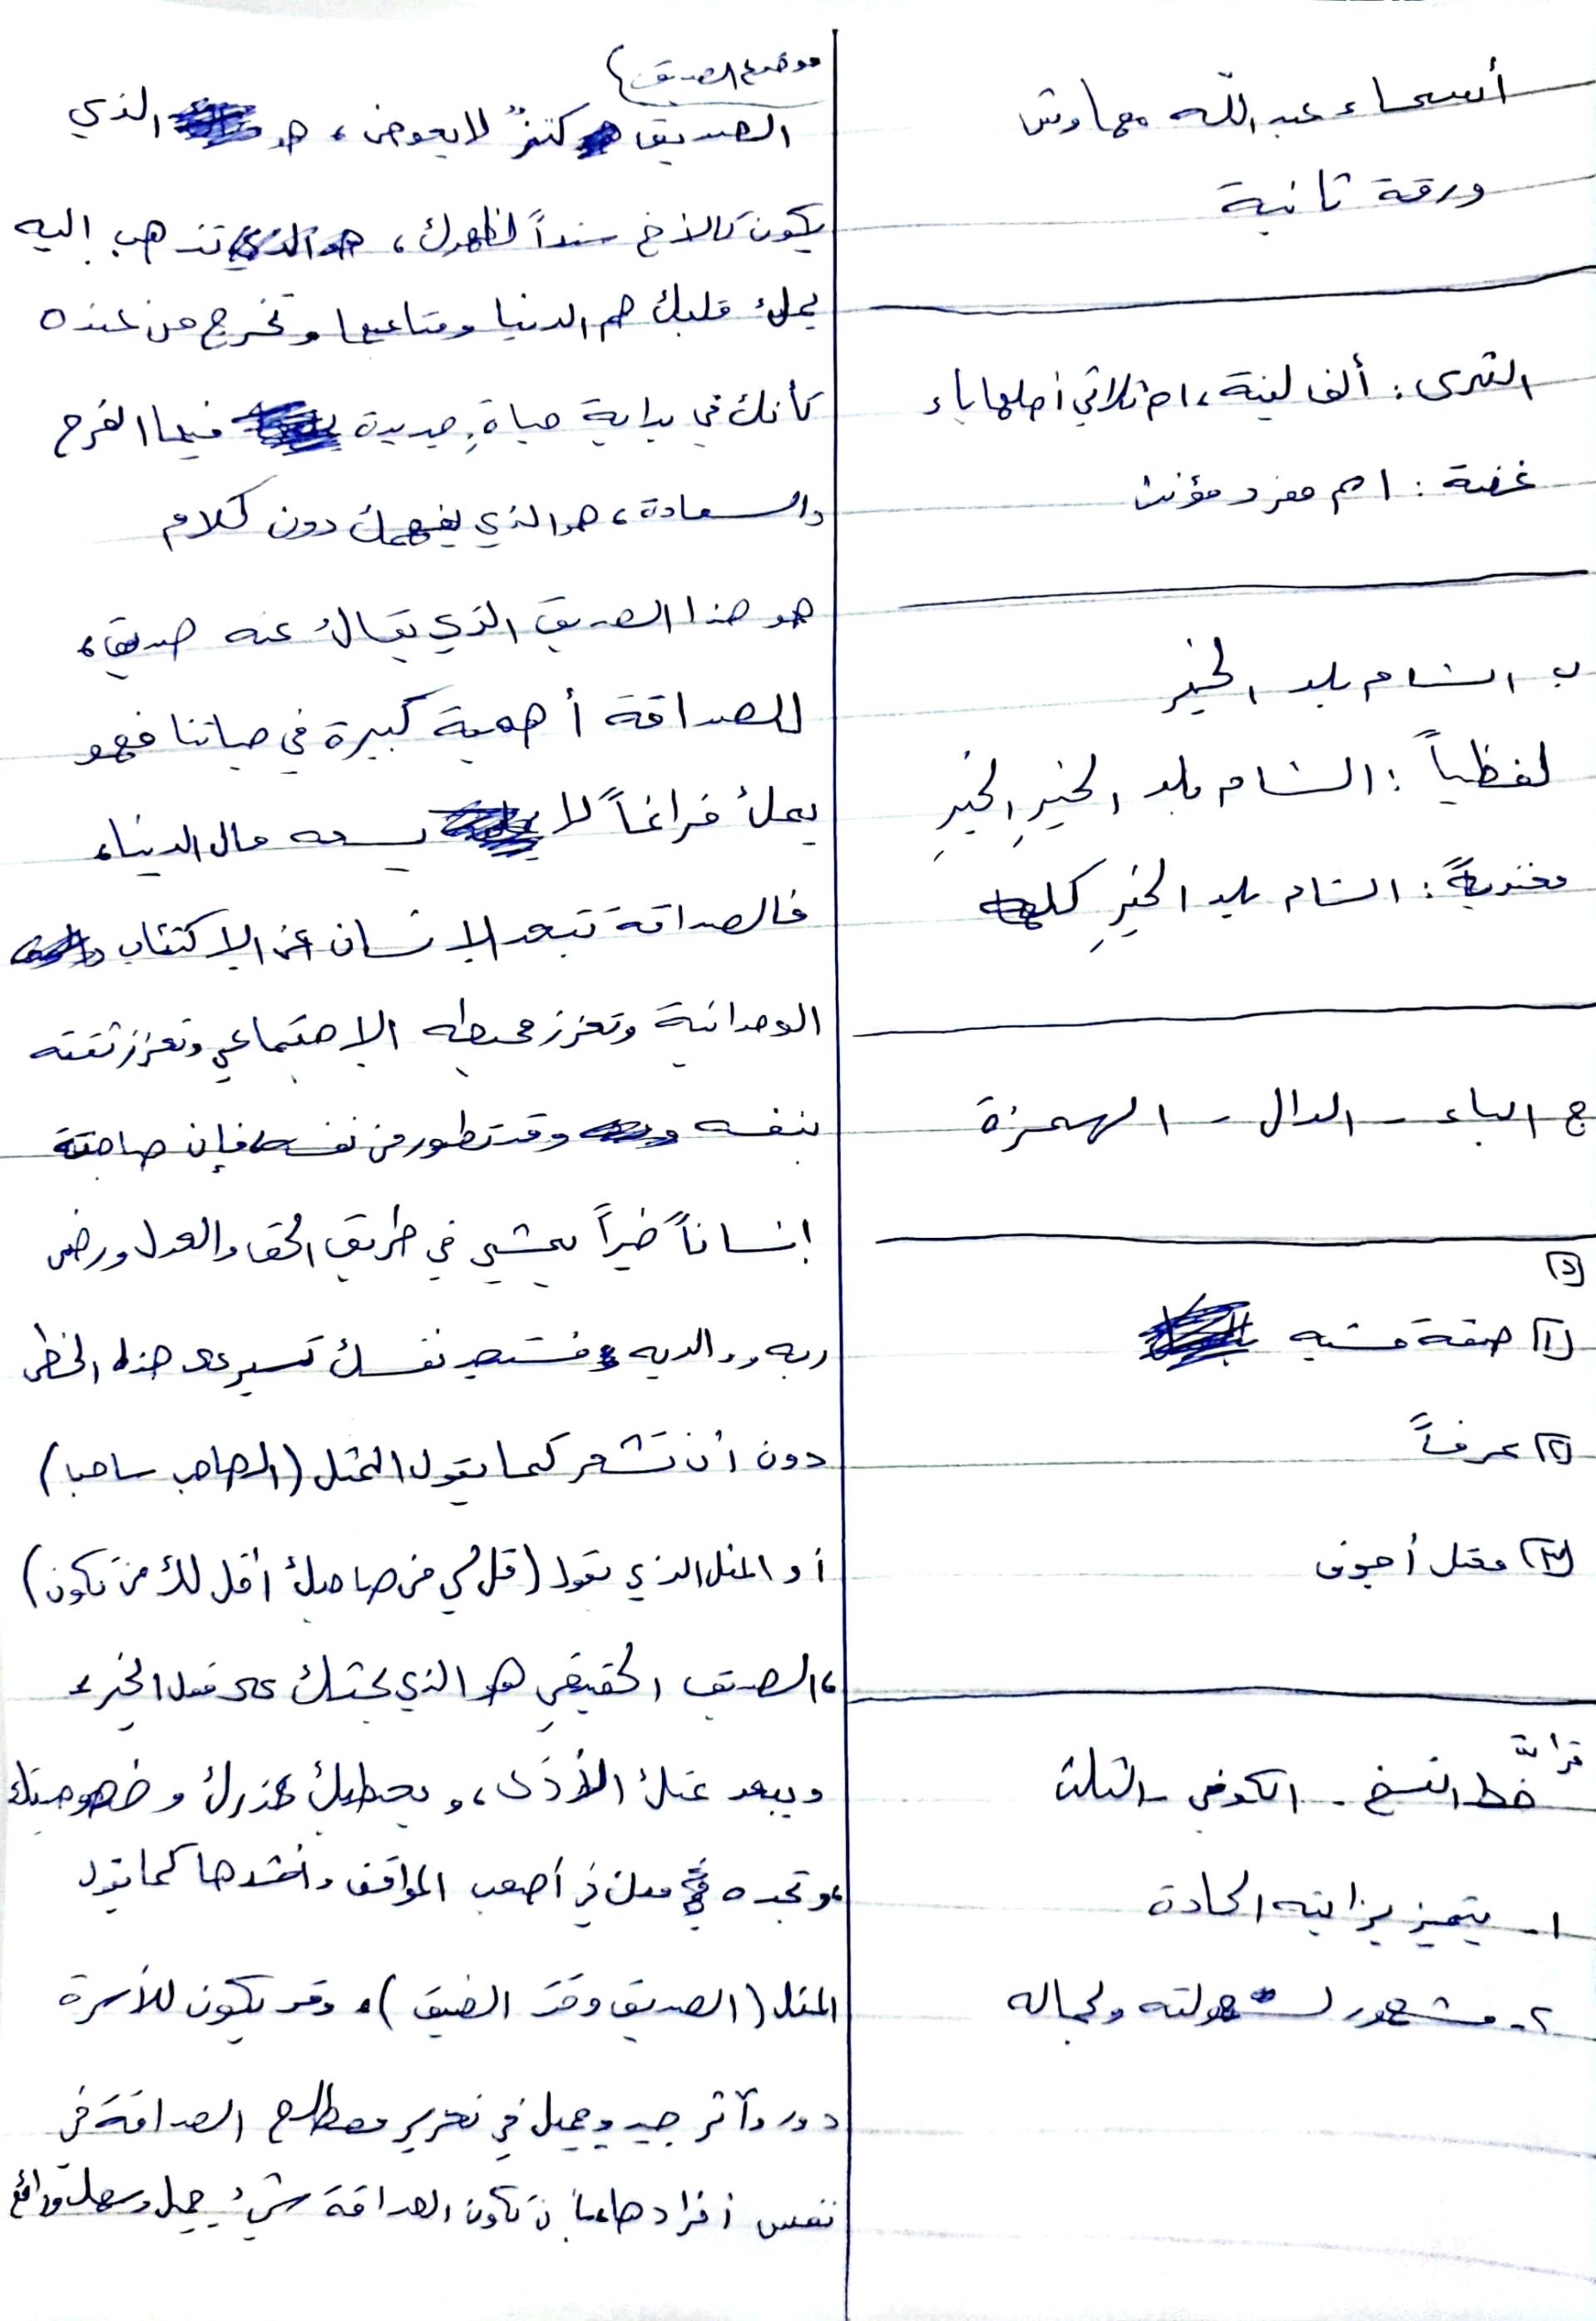 أسماء عبد الله مهاوش
ورقة ثانية
الثرى: ألف لينة، اسم ثلاثي أصلها ياء
غضة: اسم مفرد مؤنث
ب الشام بلد الخير
لفظياً: الشام بلد الخيرِ الخيرِ
معنوياً: الشام بلد الخيرِ كله
ج الباء - الدال - الهمزة
د
١) صفة مشبه
٢) عرفاً
٣) معتل أجوف
قراءة
خط النسخ - الكوفي - الثلث
١- يتميز بزاويته الحادة
٢- مشهور لسهولته ولجماله
موضوع الصديق
الصديق كنزٌ لا يعوض، هو الذي
يكون كالأخ سنداً لظهرك، تذهب إليه
يملئ قلبك هم الدنيا ومتاعبها وتخرج من عنده
كأنك في بداية حياةٍ جديدة فيها الفرح
والسعادة، هو الذي يفهمك دون كلام
هو هذا الصديق الذي يقال عنه صديق،
للصداقة أهمية كبيرة في حياتنا فهو
يملئ فراغاً لا يسعه مال الدنيا،
فالصداقة تبعد الإنسان عن الاكتئاب
الوحدانية وتعزز محيطه الاجتماعي وتعزز ثقته
بنفسه وقد تطور من نفسه، فإن صاحبت
إنساناً خيراً يمشي في طريق الحق والعدل ورضى
ربه ووالديه فستجد نفسك تسير على هذه الخطى
دون أن تشعر كما يقول المثل (الصاحب ساحب)
أو المثل الذي يقول (قل لي من صاحبك أقل لك من تكون)
، الصديق الحقيقي هو الذي يحثك على فعل الخير
ويبعد عنك الأذى، ويعطيك عذرك وخصوصيتك
، وتجده معك في أصعب المواقف وأشدها كما يقول
المثل (الصديق وقت الضيق)، وقد يكون للأسرة
دور وأثر جيد وجميل في تعزيز مصطلح الصداقة في
نفس أفرادها بأن تكون الصداقة شيءٌ جميل وسهل ورائع